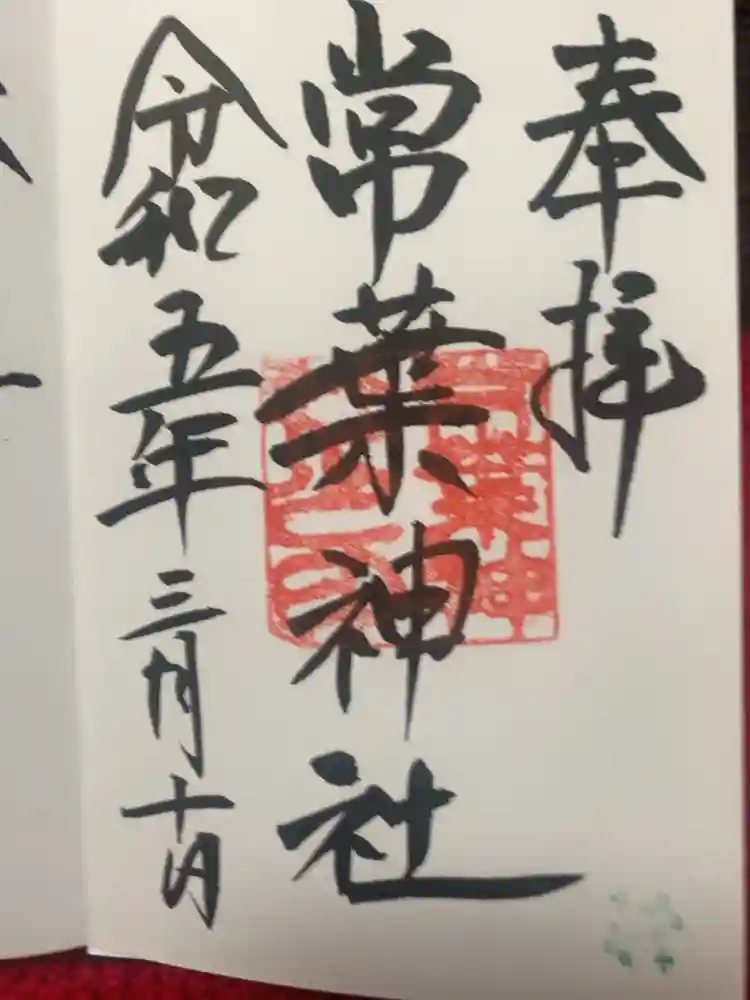 奉拝
常葉神社
令和五年三月十日